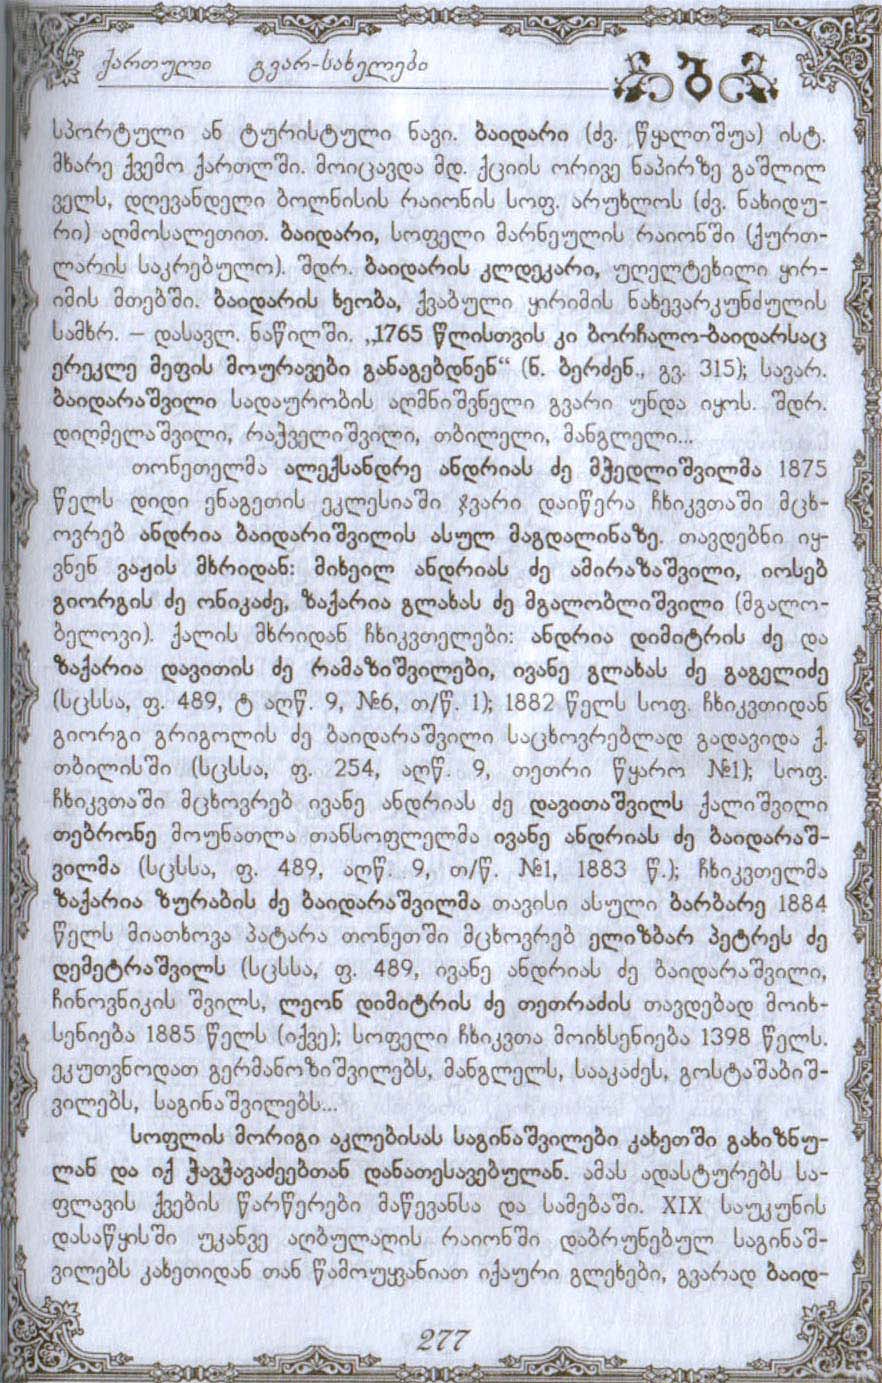 ქართული გვარ-სახელები
სპორტული ან ტურისტული ნავი. ბაიდარი (ძვ. წყალთშუა) ისტ.
მხარე ქვემო ქართლში. მოიცავდა მდ. ქციის ორივე ნაპირზე გაშლილ
ველს, დღევანდელი ბოლნისის რაიონის სოფ. არუხლოს (ძვ. ნახიდუ-
რი) აღმოსალეთით. ბაიდარი, სოფელი მარნეულის რაიონში (ქურთ-
ლარის საკრებულო). შდრ. ბაიდარის კლდეკარი, უღელტეხილი ყირ-
იმის მთებში. ბაიდარის ხეობა, ქვაბული ყირიმის ნახევარკუნძულის
სამხრ. – დასავლ. ნაწილში. „1765 წლისთვის კი ბორჩალო-ბაიდარსაც
ერეკლე მეფის მოურავები განაგებდნენ“ (ნ. ბერძენ., გვ. 315); სავარ.
ბაიდარაშვილი სადაურობის აღმნიშვნელი გვარი უნდა იყოს. შდრ.
დიღმელაშვილი, რაქველიშვილი, თბილელი, მანგლელი...
თონეთელმა ალექსანდრე ანდრიას ძე მჭედლიშვილმა 1875
წელს დიდი ენაგეთის ეკლესიაში ჯვარი დაიწერა ჩხიკვთაში მცხ-
ოვრებ ანდრია ბაიდარიშვილის ასულ მაგდალინაზე. თავდებნი იყ-
ვნენ ვაჟის მხრიდან: მიხეილ ანდრიას ძე ამირაზაშვილი, იოსებ
გიორგის ძე ონიკაძე, ზაქარია გლახას ძე მგალობლიშვილი (მგალო-
ბელოვი). ქალის მხრიდან ჩხიკვთელები: ანდრია დიმიტრის ძე და
ზაქარია დავითის ძე რამაზიშვილები, ივანე გლახას ძე გაგელიძე
(სცსსა, ფ. 489, ტ აღწ. 9, №6, თ/წ. 1); 1882 წელს სოფ. ჩხიკვთიდან
გიორგი გრიგოლის ძე ბაიდარაშვილი საცხოვრებლად გადავიდა ქ.
თბილისში (სცსსა, ფ. 254, აღწ. 9, თეთრი წყარო №1); სოფ.
ჩხიკვთაში მცხოვრებ ივანე ანდრიას ძე დავითაშვილს ქალიშვილი
თებრონე მოუნათლა თანსოფლელმა ივანე ანდრიას ძე ბაიდარაშ-
ვილმა (სცსსა, ფ. 489, აღწ. 9, თ/წ. №1, 1883 წ.); ჩხიკვთელმა
ზაქარია ზურაბის ძე ბაიდარაშვილმა თავისი ასული ბარბარე 1884
წელს მიათხოვა პატარა თონეთში მცხოვრებ ელიზბარ პეტრეს ძე
დემეტრაშვილს (სცსსა, ფ. 489, ივანე ანდრიას ძე ბაიდარაშვილი,
ჩინოვნიკის შვილს, ლეონ დიმიტრის ძე თეთრაძის თავდებად მოიხ-
სენიება 1885 წელს (იქვე); სოფელი ჩხიკვთა მოიხსენიება 1398 წელს.
ეკუთვნოდათ გერმანოზიშვილებს, მანგლელს, სააკაძეს, გოსტაშაბიშ-
ვილებს, საგინაშვილებს...
სოფლის მორიგი აკლებისას საგინაშვილები კახეთში გახიზნუ-
ლან და იქ ჭავჭავაძეებთან დანათესავებულან. ამას ადასტურებს სა-
ფლავის ქვების წარწერები მაწევანსა და სამებაში. XIX საუკუნის
დასაწყისში უკანვე აღბულაღის რაიონში დაბრუნებულ საგინაშ-
ვილებს კახეთიდან თან წამოუყვანიათ იქაური გლეხები, გვარად ბაიდ-
277